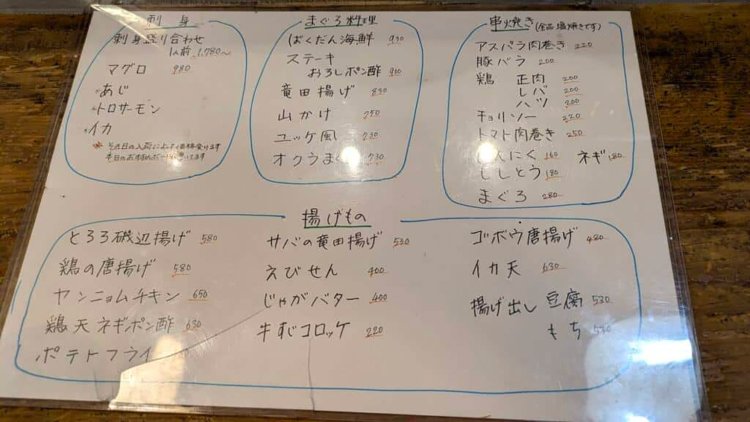 刺身
刺身盛り合わせ
1人前 1,780〜
マグロ 980
・あじ
・トロサーモン
・イカ
まぐろ料理
ばくだん海鮮 970
ステーキ
おろしポン酢 900
竜田揚げ 830
山かけ 750
ユッケ風 730
オクラまぐろ 730
串焼き (全品塩焼きです)
アスパラ肉巻き 220
豚バラ 200
鶏 正肉 200
レバ 200
ハツ 200
チョリソー 220
トマト肉巻き 250
にんにく 160 ネギ 180
ししとう 180
まぐろ 280
揚げもの
とろろ磯辺揚げ 580
鶏の唐揚げ 580
ヤンニョムチキン 650
鶏天ネギポン酢 630
ポテトフライ
サバの竜田揚げ 530
えびせん 400
じゃがバター 400
牛すじコロッケ 220
ゴボウ唐揚げ 480
イカ天 630
揚げ出し 豆腐 530
もち